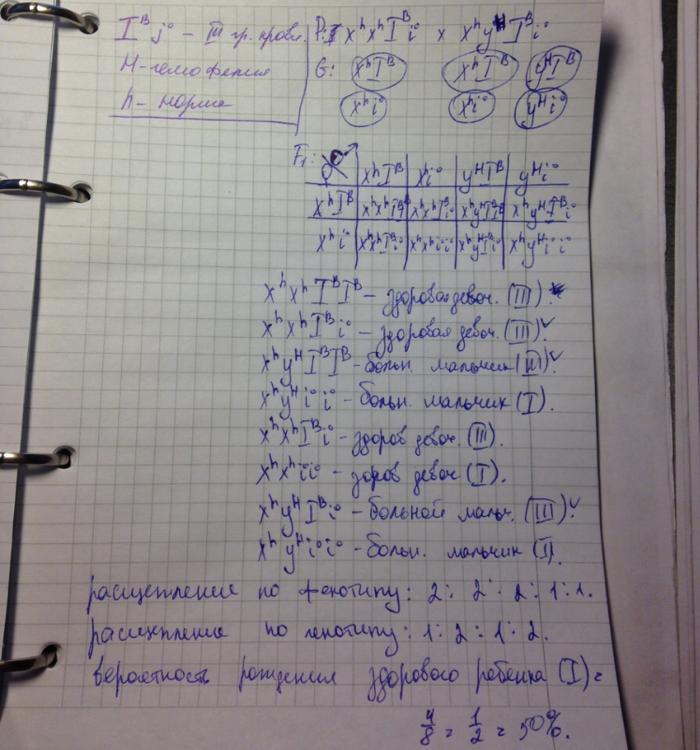 I^B i^o – III гр. крови.
H - гемофилия
h - норма
P: X^h X^h I^B i^o x X^h y^H I^B i^o
G: X^h I^B X^h I^B y^H I^B
X^h i^o X^h i^o y^H i^o
F1: ♀ ♂ X^h I^B X^h i^o y^H I^B y^H i^o
X^h I^B X^h X^h I^B I^B X^h X^h I^B i^o X^h y^H I^B I^B X^h y^H I^B i^o
X^h i^o X^h X^h I^B i^o X^h X^h i^o i^o X^h y^H I^B i^o X^h y^H i^o i^o
X^h X^h I^B I^B – здоровая девоч. (III).
X^h X^h I^B i^o – здоровая девоч. (III).
X^h y^H I^B I^B - больн. мальчик (III)
X^h y^H i^o i^o - больн. мальчик (I).
X^h X^h I^B i^o - здоров девоч. (III).
X^h X^h i^o i^o - здоров девоч (I).
X^h y^H I^B i^o - больной мальч. (III).
X^h y^H i^o i^o - больн. мальчик (I).
расщепление по фенотипу: 2: 2: 2: 1: 1.
расщепление по генотипу: 1: 2: 1: 2.
вероятность рождения здорового ребенка (I) =
4/8 = 1/2 = 50%.